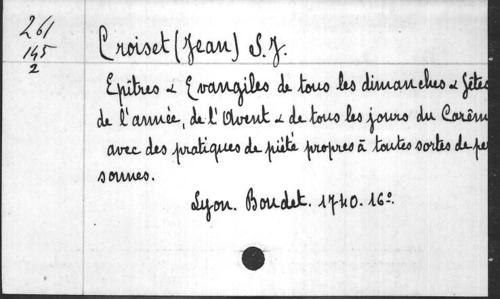 261
145
2
Croiset (Jean) S.J.
Epîtres & Evangiles de tous les dimanches & fêtes
de l'année, de l'Avent & de tous les jours du Carêm
avec des pratiques de piété propres à toutes sortes de per
sonnes.
Lyon. Boudet. 1740. 16º.